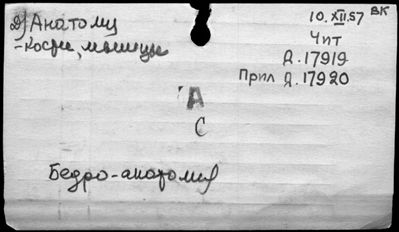 2) Анатому
10. XII.57 ВК
-кости, мышцы
Чит
Д. 17919
Прил Д. 17920
А
С
Бедро-анатомия